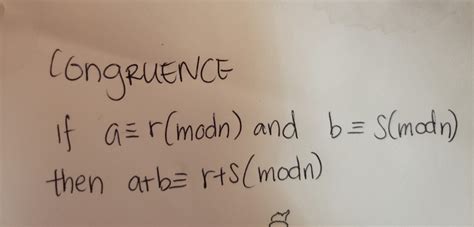 CONGRUENCE
If a≡r(modn) and b≡S(modn)
then a+b≡ r+S(modn)